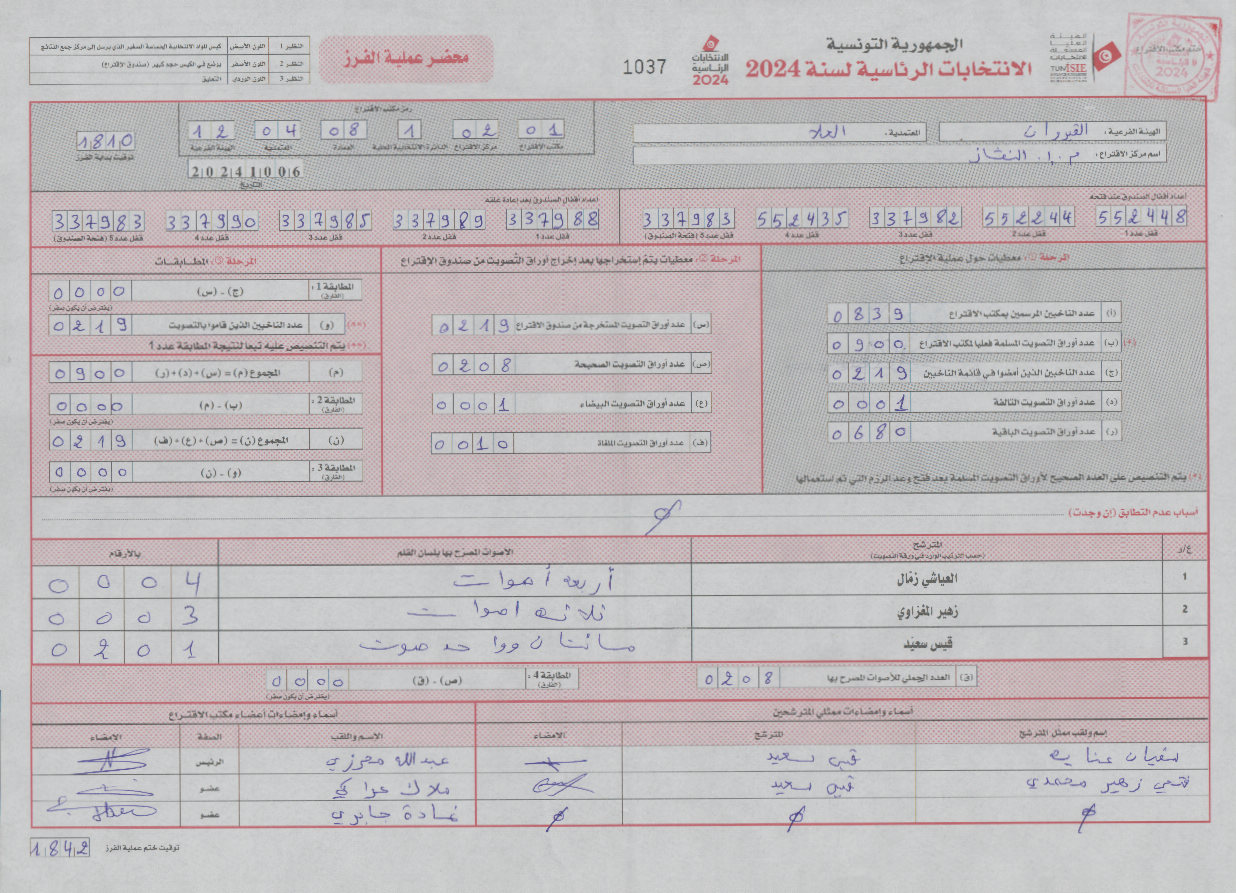 الجمهورية التونسية
الانتخابات الرئاسية لسنة 2024
الهيئة
العليا
المستقلة
للانتخابات
TUNISIE
ختم مكتب الاقتراع
الانتخابات
الرئاسية
2024
1037
محضر عملية الفرز
النظير 1 اللون الأبيض كيس المواد الانتخابية الحساسة الصغير الذي يرسل إلى مركز جمع النتائج
النظير 2 اللون الأصفر يوضع في الكيس حجم كبير (صندوق الاقتراع)
النظير 3 اللون الوردي التعليق
الهيئة الفرعية : القيروان
المعتمدية : العلا
اسم مركز الاقتراع : م.إ. النقاز
رمز مكتب الاقتراع
01 02 1 08 04 12
مكتب الاقتراع مركز الاقتراع الدائرة الانتخابية المحلية العمادة المعتمدية الهيئة الفرعية
20241006
التاريخ
1810
توقيت بداية الفرز
أعداد أقفال الصندوق عند فتحه
552448 552244 337982 552435 337983
قفل عدد 1 قفل عدد 2 قفل عدد 3 قفل عدد 4 قفل عدد 5 (فتحة الصندوق)
أعداد أقفال الصندوق بعد إعادة غلقه
337988 337989 337985 337990 337983
قفل عدد 1 قفل عدد 2 قفل عدد 3 قفل عدد 4 قفل عدد 5 (فتحة الصندوق)
المرحلة ①: معطيات حول عملية الاقتراع
(أ) عدد الناخبين المرسمين بمكتب الاقتراع 0839
(*) (ب) عدد أوراق التصويت المسلمة فعليا لمكتب الاقتراع 0900
(ج) عدد الناخبين الذين أمضوا في قائمة الناخبين 0219
(د) عدد أوراق التصويت التالفة 0001
(ر) عدد أوراق التصويت الباقية 0680
(*) يتم التنصيص على العدد الصحيح لأوراق التصويت المسلمة بعد فتح وعد الرزم التي تم استعمالها
المرحلة ②: معطيات يتم إستخراجها بعد إخراج أوراق التصويت من صندوق الإقتراع
(س) عدد أوراق التصويت المستخرجة من صندوق الاقتراع 0219
(ص) عدد أوراق التصويت الصحيحة 0208
(ع) عدد أوراق التصويت البيضاء 0001
(ف) عدد أوراق التصويت الملغاة 0010
المرحلة ③: المطابقات
المطابقة 1 : (الفارق) (ج) - (س) 0000
(يفترض أن يكون صفر)
(**) (و) عدد الناخبين الذين قاموا بالتصويت 0219
(**) يتم التنصيص عليه تبعا لنتيجة المطابقة عدد 1
(م) المجموع (م) = (س) + (د) + (ر) 0900
المطابقة 2 : (الفارق) (ب) - (م) 0000
(يفترض أن يكون صفر)
(ن) المجموع (ن) = (ص) + (ع) + (ف) 0219
المطابقة 3 : (الفارق) (و) - (ن) 0000
(يفترض أن يكون صفر)
أسباب عدم التطابق (إن وجدت)
ع/د المترشح الأصوات المصرح بها بلسان القلم بالأرقام
(حسب الترتيب الوارد في ورقة التصويت)
1 العياشي زمّال أربعة أصوات 0004
2 زهير المغزاوي ثلاثة أصوات 0003
3 قيس سعيّد مائتان وواحد صوت 0201
(ق) العدد الجملي للأصوات المصرح بها 0208
المطابقة 4 : (الفارق) (ص) - (ق) 0000
(يفترض أن يكون صفر)
أسماء وإمضاءات ممثلي المترشحين
إسم ولقب ممثل المترشح المترشح الامضاء
سفيان عناية قيس سعيد
فتحي زهير محمدي قيس سعيد
أسماء وإمضاءات أعضاء مكتب الاقتراع
الاسم واللقب الصفة الامضاء
عبد الله محرزي الرئيس
ملاك عضو
غادة جابري عضو
توقيت ختم عملية الفرز 1842